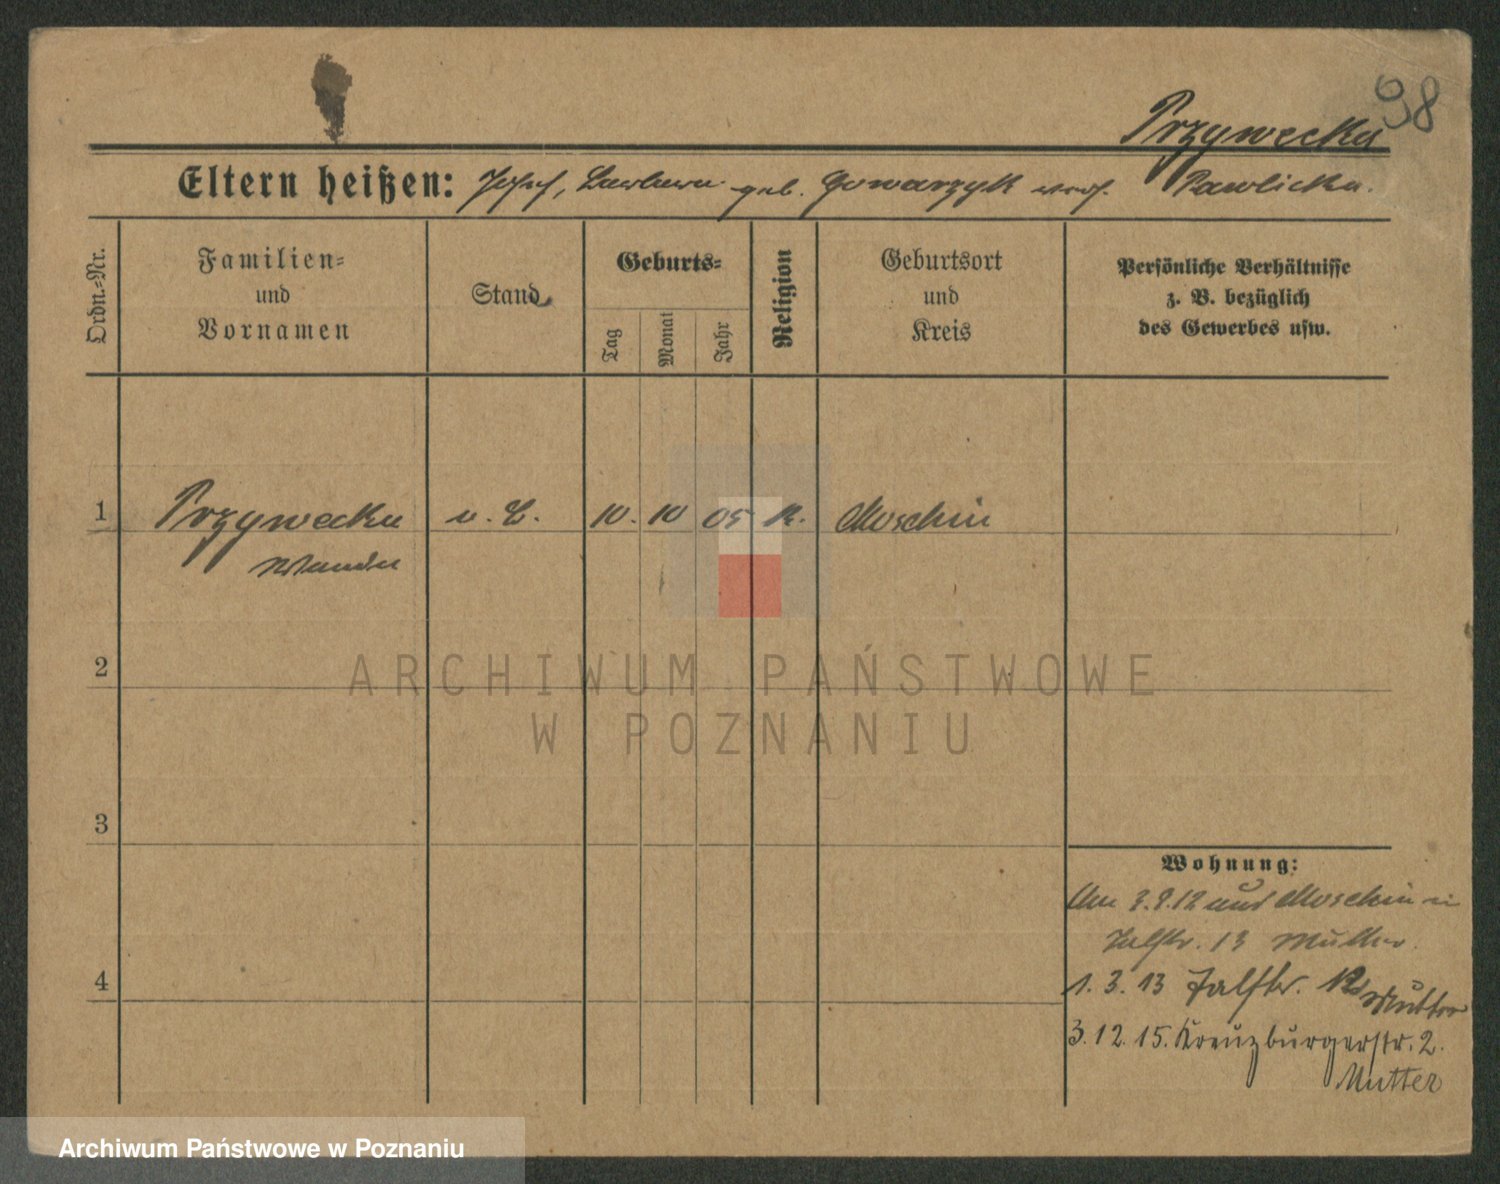 98
Przywecka
Eltern heißen: Josef, Barbara geb. Gowarzyk verh. Pawlicka.
Ordn.-Nr.
Familien-
und
Vornamen
Stand
Geburts-
Tag
Monat
Jahr
Religion
Geburtsort
und
Kreis
Persönliche Verhältnisse
z. B. bezüglich
des Gewerbes usw.
1 Przywecka u. E. 10. 10 05 K. Moschin
Wanda
2
3
4
Wohnung:
Am 3.9.12 aus Moschin
Jalstr. 13 Mutter.
1. 3. 13 Mutter
3. 12. 15. Kreuzburgerstr. 2.
Mutter
ARCHIWUM PAŃSTWOWE
W POZNANIU
Archiwum Państwowe w Poznaniu